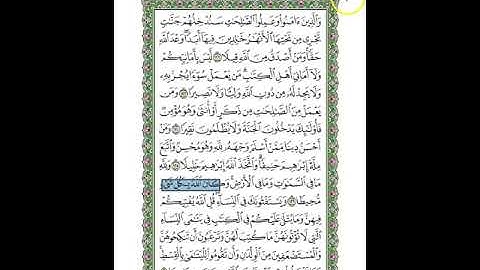 وَالَّذِينَ ءَامَنُوا وَعَمِلُوا الصَّٰلِحَٰتِ سَنُدْخِلُهُمْ جَنَّٰتٍ
تَجْرِى مِن تَحْتِهَا الْأَنْهَٰرُ خَٰلِدِينَ فِيهَا أَبَدًا وَعْدَ اللَّهِ
حَقًّا وَمَنْ أَصْدَقُ مِنَ اللَّهِ قِيلًا ۝ لَّيْسَ بِأَمَانِيِّكُمْ
وَلَا أَمَانِىِّ أَهْلِ الْكِتَٰبِ مَن يَعْمَلْ سُوٓءًا يُجْزَ بِهِ
وَلَا يَجِدْ لَهُ مِن دُونِ اللَّهِ وَلِيًّا وَلَا نَصِيرًا ۝ وَمَن
يَعْمَلْ مِنَ الصَّٰلِحَٰتِ مِن ذَكَرٍ أَوْ أُنثَىٰ وَهُوَ مُؤْمِنٌ
فَأُولَٰٓئِكَ يَدْخُلُونَ الْجَنَّةَ وَلَا يُظْلَمُونَ نَقِيرًا ۝ وَمَنْ
أَحْسَنُ دِينًا مِّمَّنْ أَسْلَمَ وَجْهَهُ لِلَّهِ وَهُوَ مُحْسِنٌ وَاتَّبَعَ
مِلَّةَ إِبْرَٰهِيمَ حَنِيفًا وَاتَّخَذَ اللَّهُ إِبْرَٰهِيمَ خَلِيلًا ۝ وَلِلَّهِ
مَا فِى السَّمَٰوَٰتِ وَمَا فِى الْأَرْضِ وَكَانَ اللَّهُ بِكُلِّ شَىْءٍ
مُّحِيطًا ۝ وَيَسْتَفْتُونَكَ فِى النِّسَاءِ قُلِ اللَّهُ يُفْتِيكُمْ
فِيهِنَّ وَمَا يُتْلَىٰ عَلَيْكُمْ فِى الْكِتَٰبِ فِى يَتَٰمَى النِّسَاءِ
الَّٰتِى لَا تُؤْتُونَهُنَّ مَا كُتِبَ لَهُنَّ وَتَرْغَبُونَ أَن تَنكِحُوهُنَّ
وَالْمُسْتَضْعَفِينَ مِنَ الْوِلْدَٰنِ وَأَن تَقُومُوا لِلْيَتَٰمَىٰ